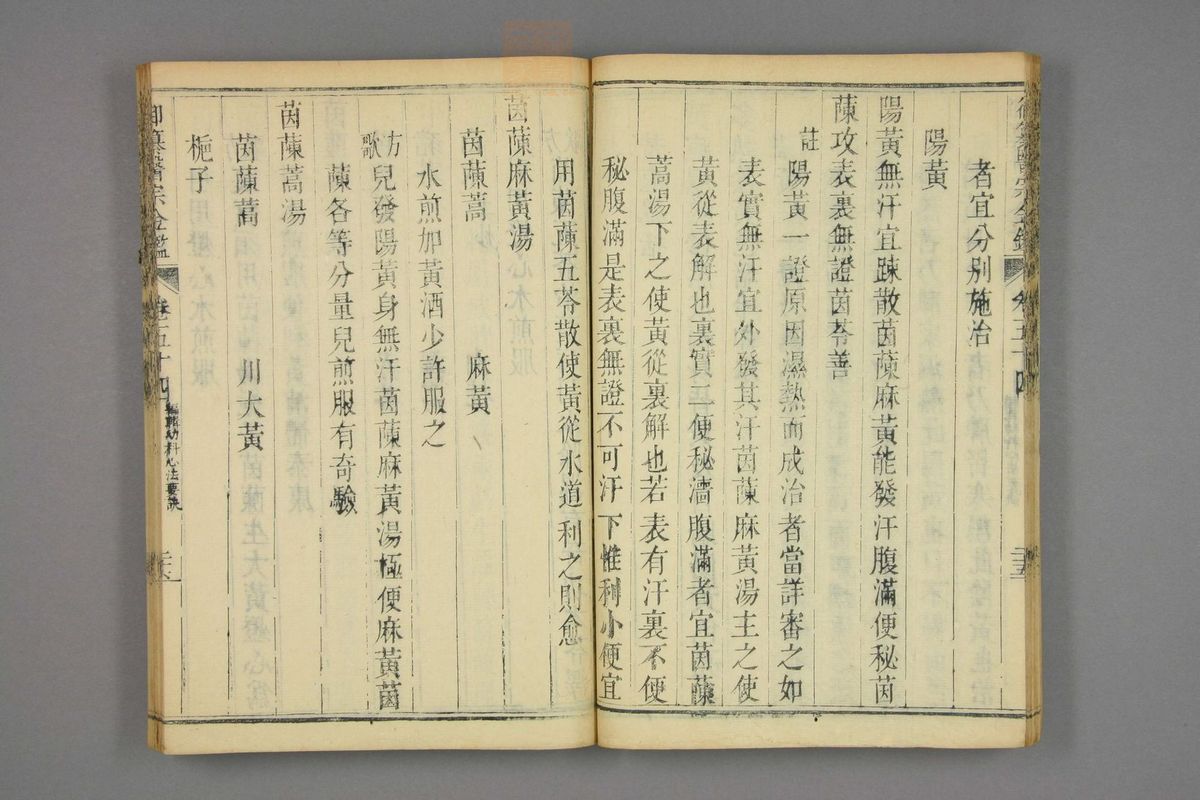 者宜分别施治
陽黃
陽黃無汗宜踈散茵蔯麻黃能發汗腹滿便秘茵
蔯攻表裏無證茵苓善
註
陽黃一證原因濕熱而成治者當詳審之如
表實無汗宜外發其汗茵蔯麻黃湯主之使
黃從表解也裏實二便秘濇腹滿者宜茵蔯
蒿湯下之使黃從裏解也若表有汗裏不便
秘腹滿是表裏無證不可汗下惟利小便宜
用茵蔯五苓散使黃從水道利之則愈
茵蔯麻黃湯
茵蔯蒿 麻黃
水煎加黃酒少許服之
方歌
兒發陽黃身無汗茵蔯麻黃湯極便麻黃茵
蔯各等分量兒煎服有奇驗
茵蔯蒿湯
茵蔯蒿 川大黃
梔子
御纂醫宗金鑑 卷五十四 編輯幼科心法要訣